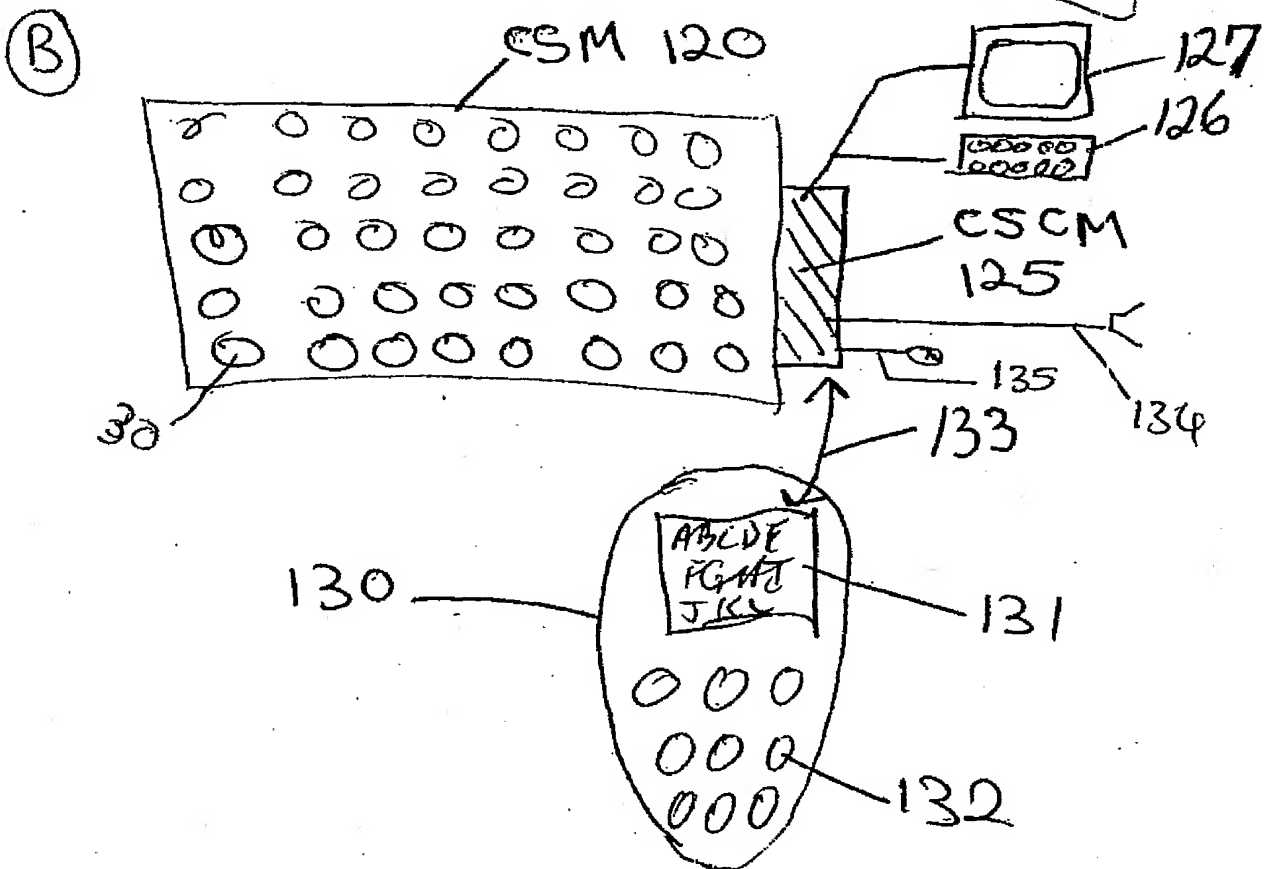 B
CSM 120
127
126
CSCM
125
30
135
134
133
ABCDE
FGHI
JKL
130
131
132